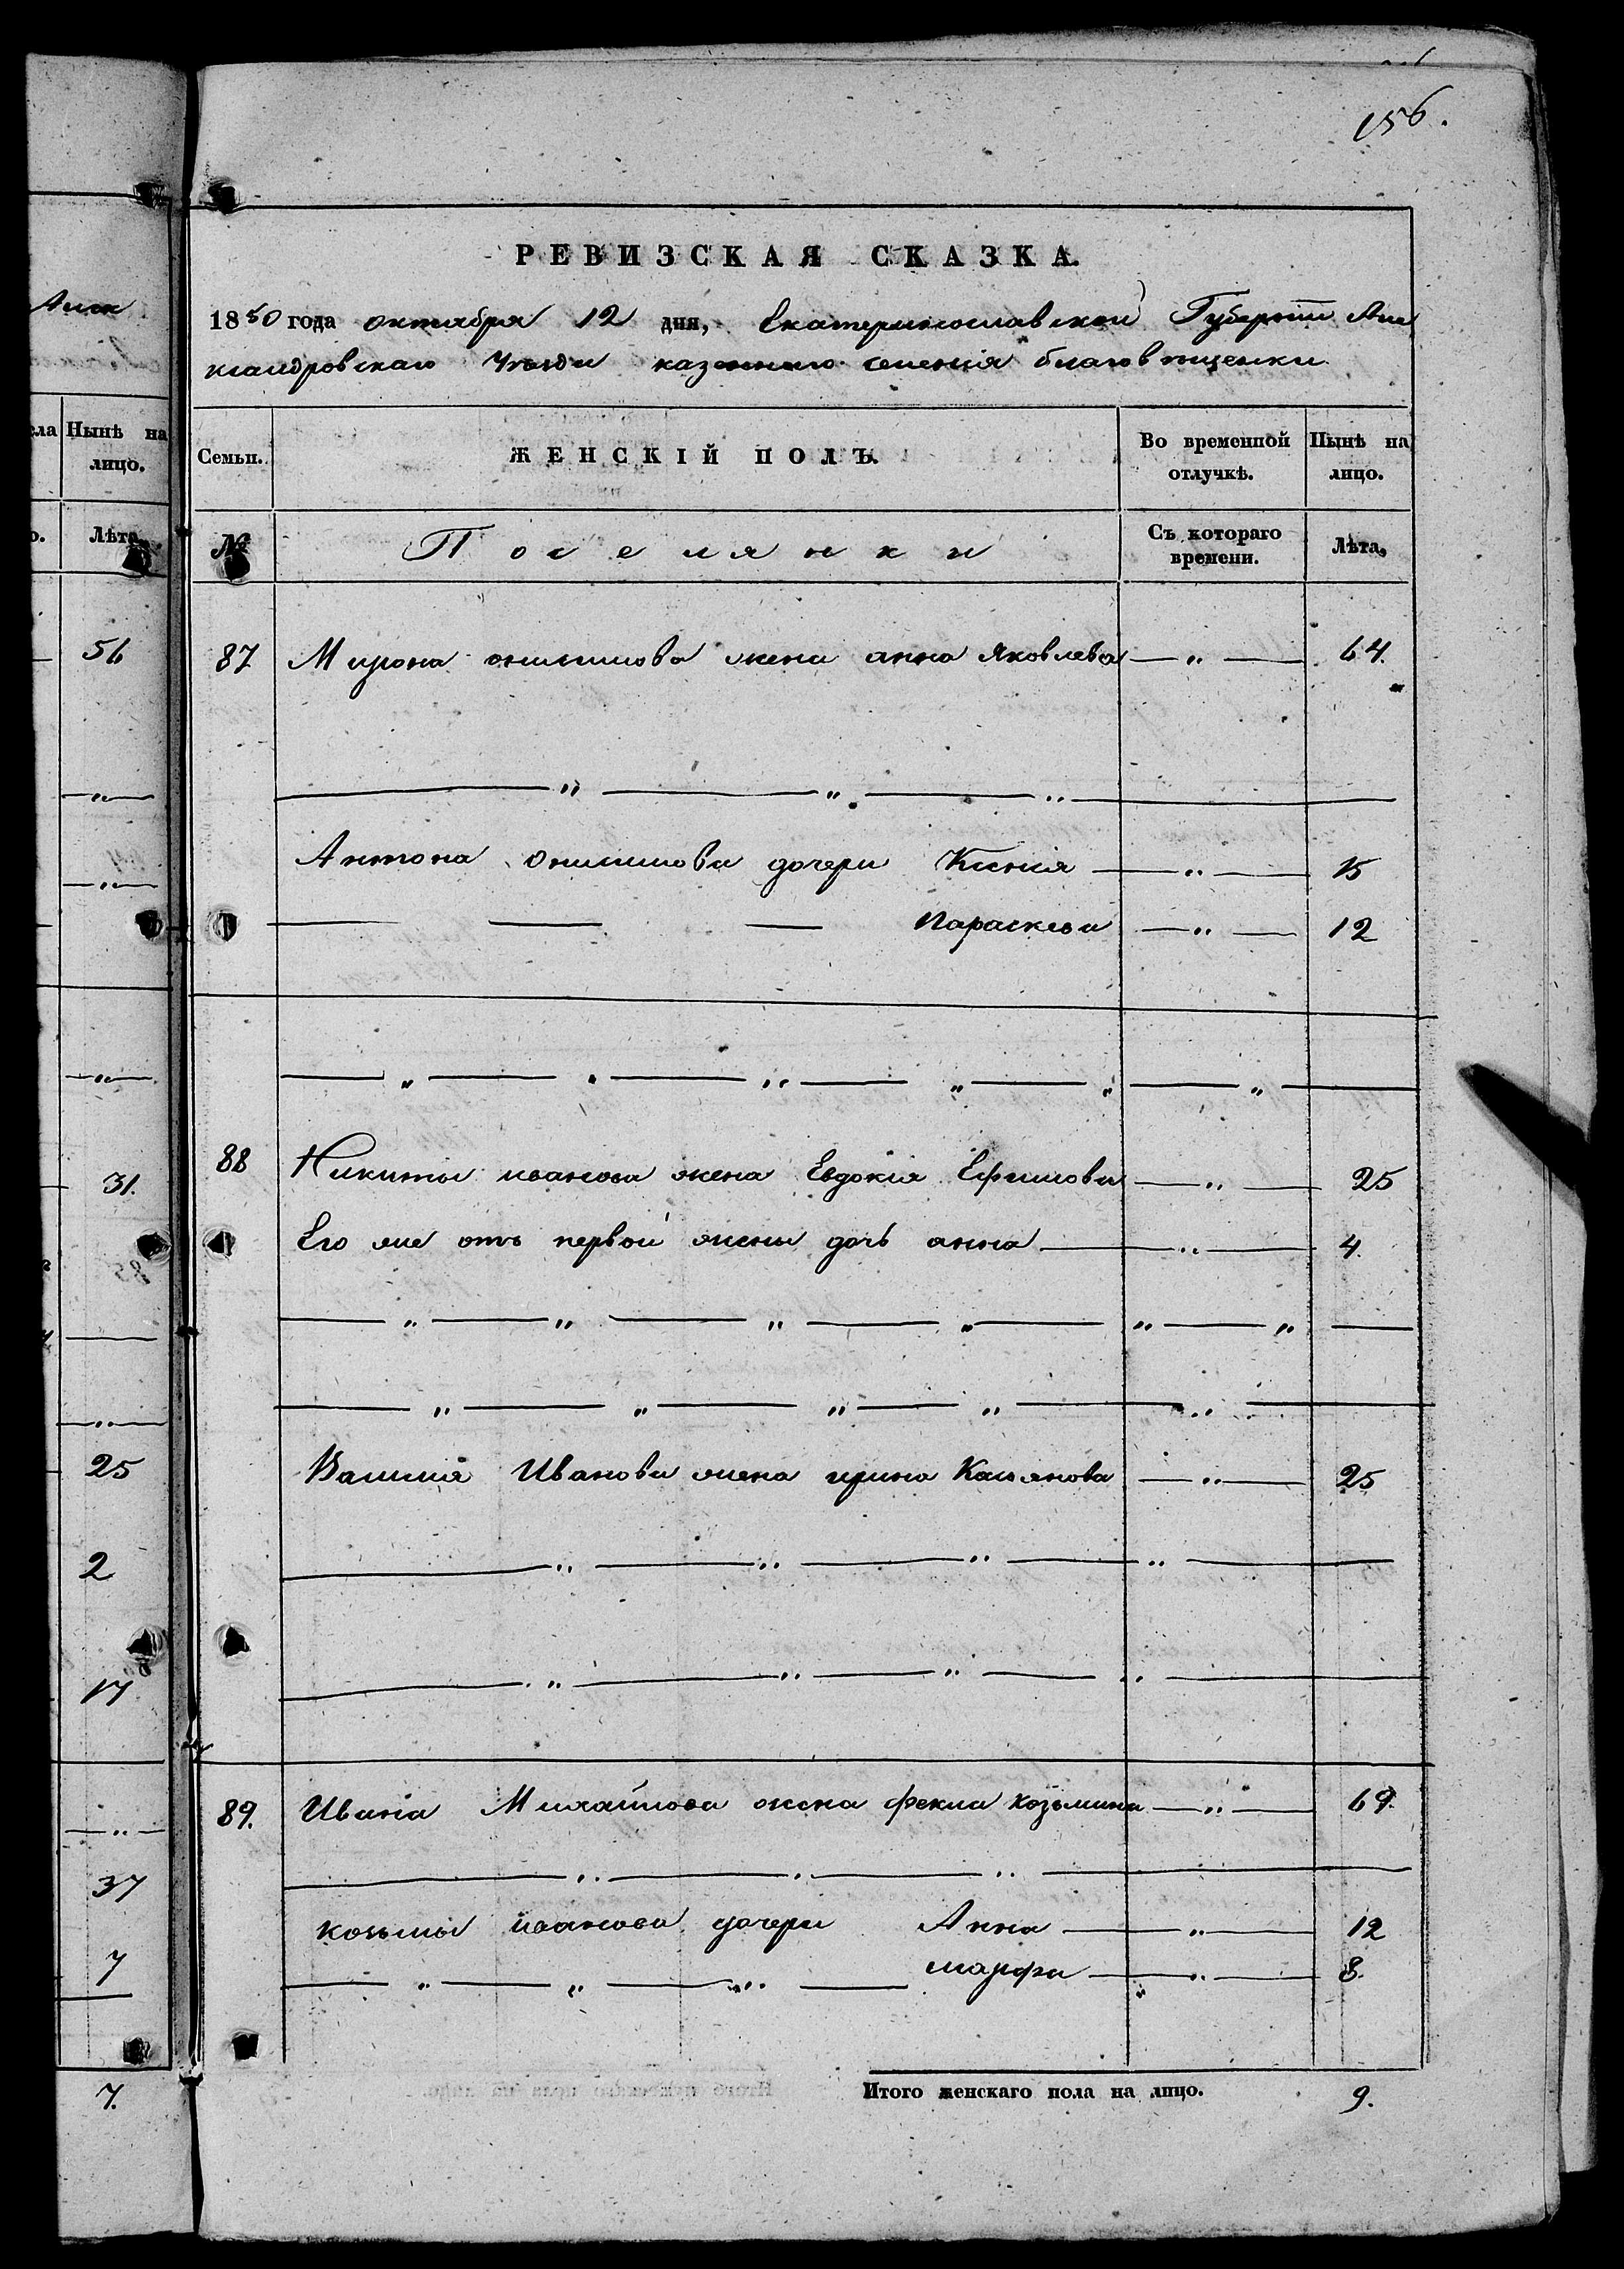 156.
РЕВИЗСКАЯ СКАЗКА.
1850 года октября 12 дня, Екатеринославской Губернiи Але
ксандровскаго Уѣзда казеннаго селенiя благовѣщенки
Семьи.
ЖЕНСКIЙ ПОЛЪ.
Во временной отлучкѣ.
Нынѣ на лицо.
№
Поселянки
Съ котораго времени.
Лѣта,
87 Мирона онисимова жена анна Яковлева — „ — 64.
Антона Онисимова дочери Ксенiя — „ — 15
— — — Параскева — „ — 12
88 Никиты иванова жена Евдокiя Ефимова — „ — 25
Его же отъ первой жены дочь анна — „ — 4.
Василiя Иванова жена ирина Касьянова — „ — 25
89. Ивана Михайлова жена фекла козьмина — „ — 69.
козьмы иванова дочери Анна — „ — 12
— „ — „ — „ — марфа — „ — 8.
Итого женскаго пола на лицо. 9.
Нынѣ на лицо.
Лѣта
56
31.
25
2
17
37
7
7.